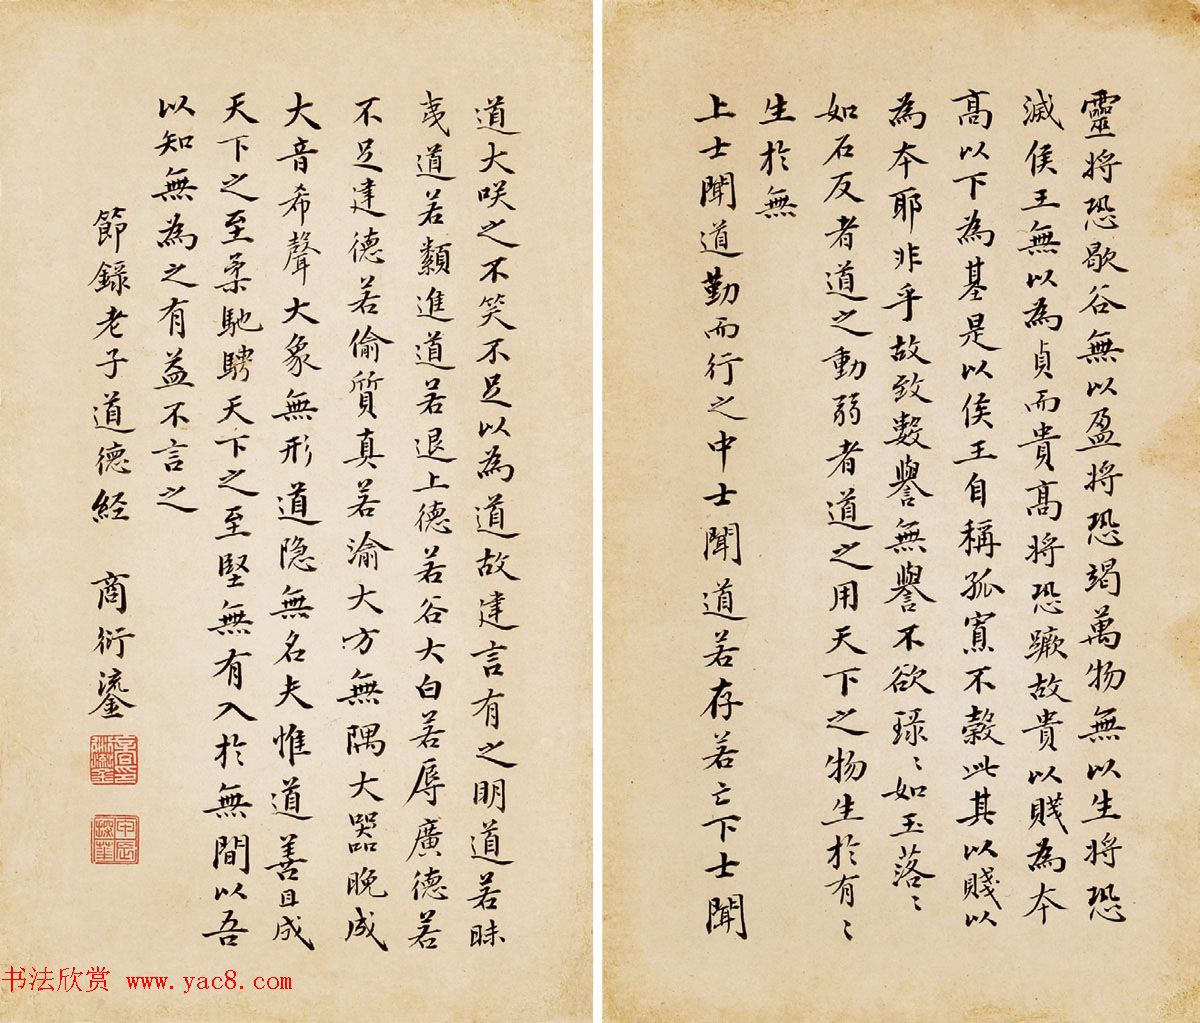 靈將恐歇谷無以盈將恐竭萬物無以生將恐
滅侯王無以為貞而貴高將恐蹶故貴以賤為本
高以下為基是以侯王自稱孤寡不穀此其以賤以
為本耶非乎故致數譽無譽不欲琭〻如玉落〻
如石反者道之動弱者道之用天下之物生於有〻
生於無
上士聞道勤而行之中士聞道若存若亡下士聞
道大咲之不笑不足以為道故建言有之明道若昧
夷道若纇進道若退上德若谷大白若辱廣德若
不足建德若偷質真若渝大方無隅大器晚成
大音希聲大象無形道隐無名夫惟道善且成
天下之至柔馳騁天下之至堅無有入於無間以吾
以知無為之有益不言之
節錄老子道德経 商衍鎏
書法欣赏 www.yac8.com